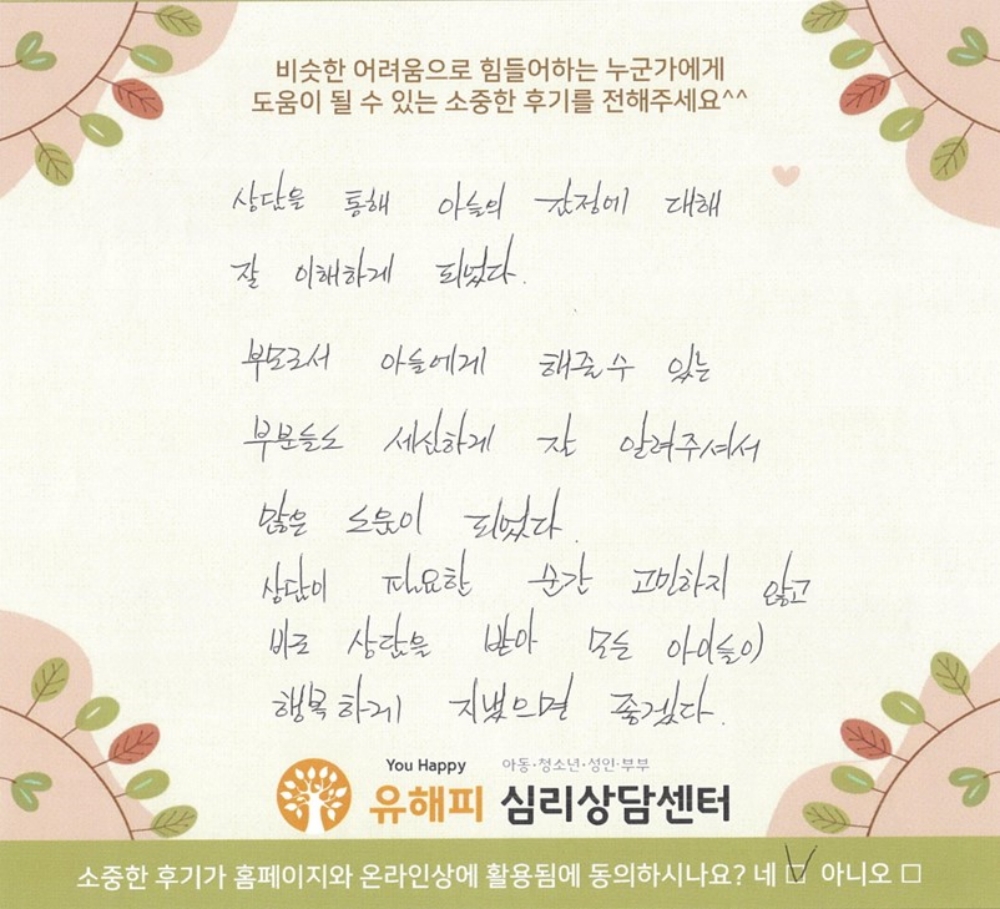 비슷한 어려움으로 힘들어하는 누군가에게
도움이 될 수 있는 소중한 후기를 전해주세요^^
상담을 통해 아들의 감정에 대해
잘 이해하게 되었다.
부모로서 아들에게 해줄 수 있는
부분들도 세심하게 잘 알려주셔서
많은 도움이 되었다.
상담이 필요한 순간 고민하지 않고
바로 상담을 받아 모든 아이들이
행복하게 지냈으면 좋겠다.
You Happy 아동·청소년·성인·부부
유해피 심리상담센터
소중한 후기가 홈페이지와 온라인상에 활용됨에 동의하시나요? 네 ☑ 아니오 □